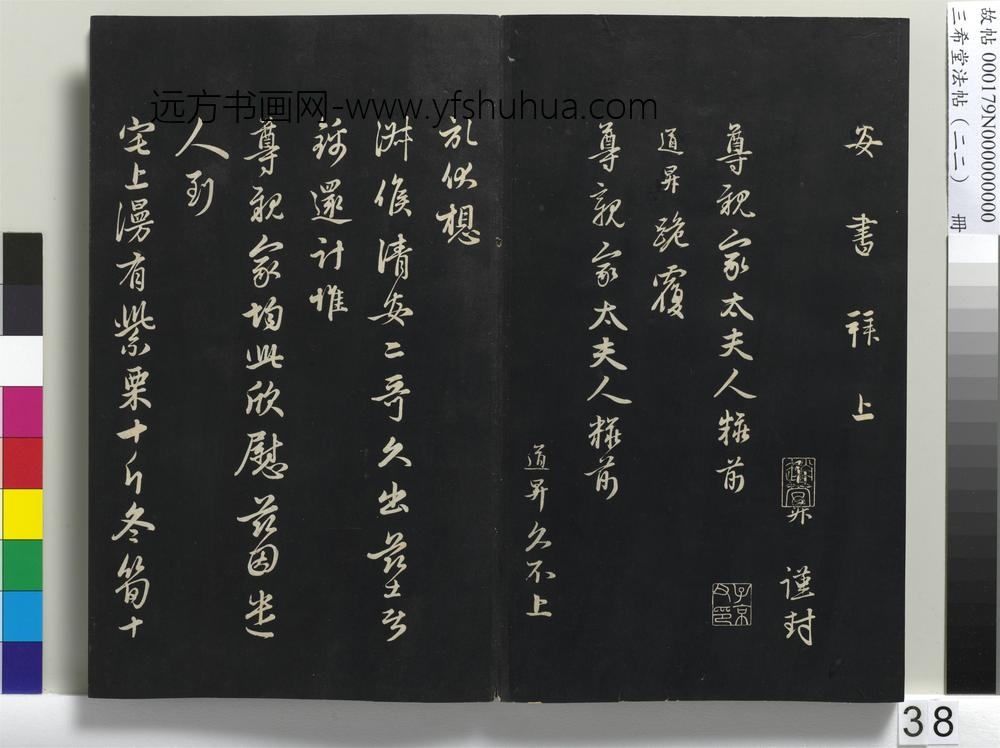 安書拜上
昇 謹封
趙管
子京父印
尊親家太夫人粧前
道昇跪覆
尊親家太夫人粧前
道昇久不上
狀伏想
淑候清安二哥久出茲喜
錦還計惟
尊親家均此欣慰茲因遣
人到
宅上謾有紫栗十斤冬筍十
远方书画网-www.yfshuhua.com
故帖 000179N000000000
三希堂法帖（二二） 冊
38